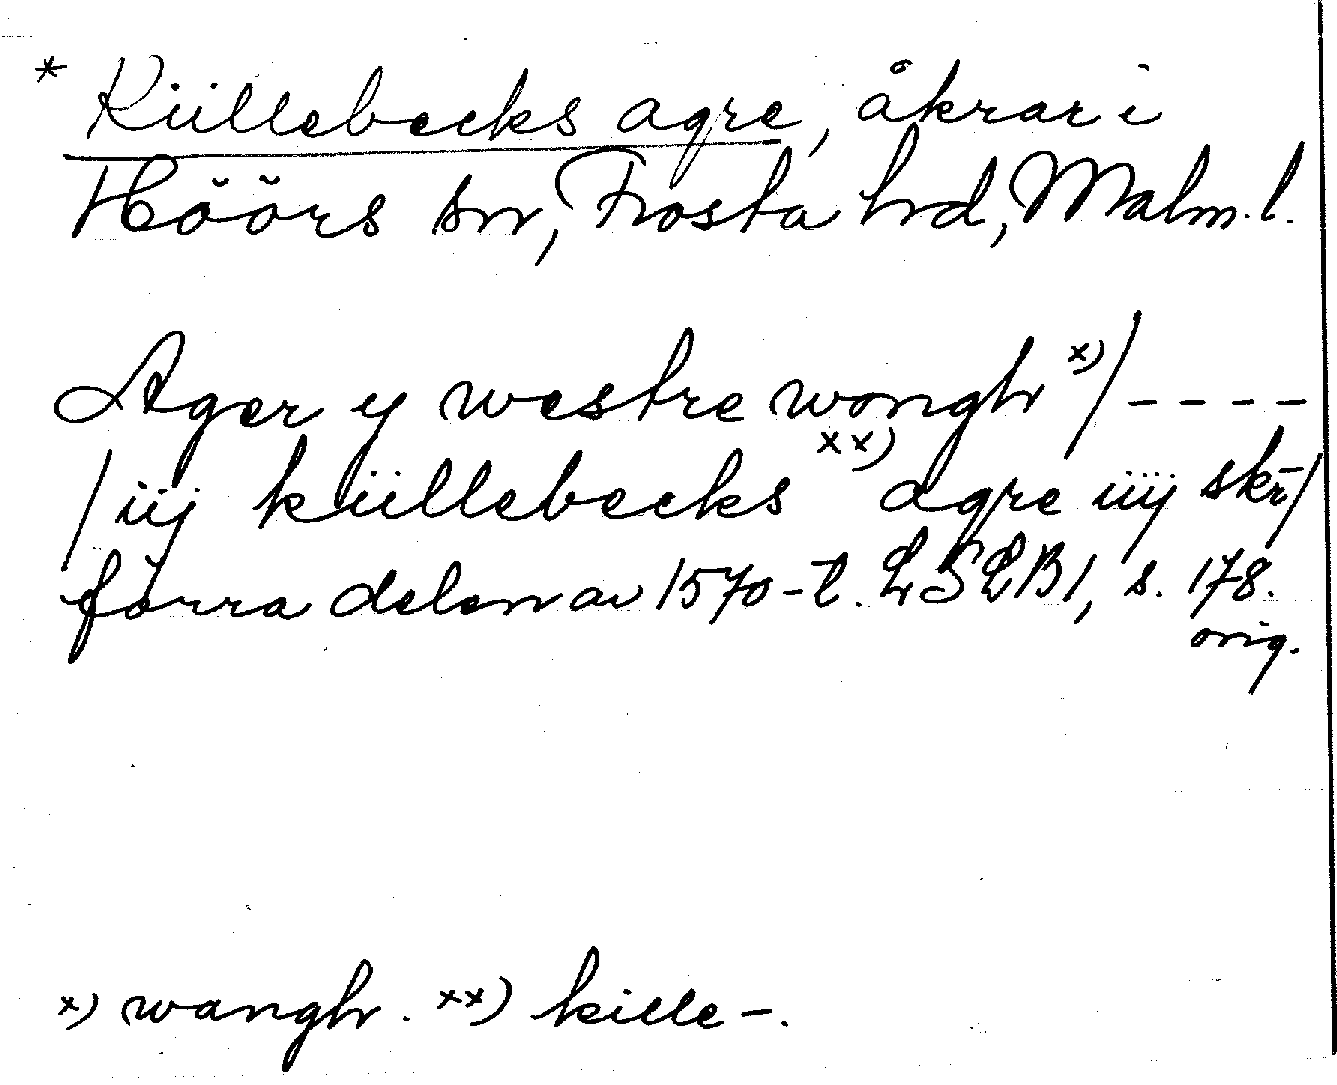 * Küllebecks agre, åkrar i
Höörs sn, Frosta hd, Malm. l.
Ager y westre wongh x) / - - - -
/ iij küllebecks xx) agre iiij skr̄ /
förra delen av 1570-t. LSLB 1, s. 178.
orig.
x) wangh. xx) kille-.